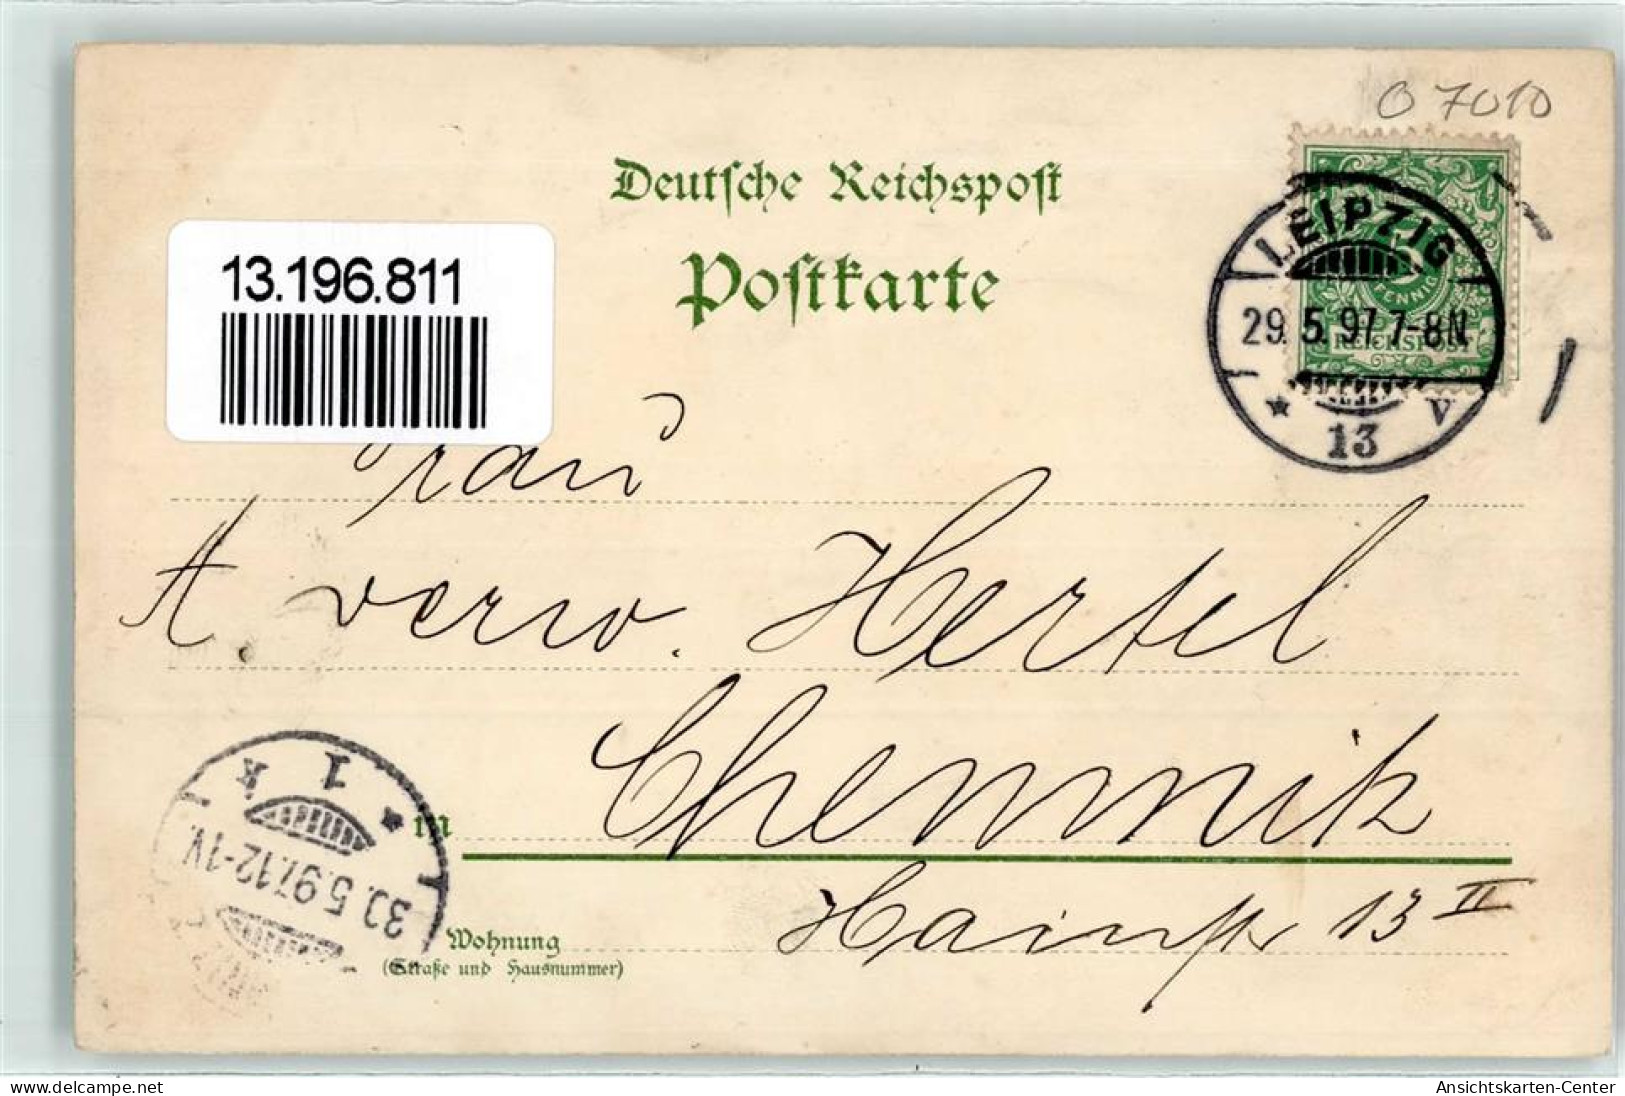 O 7010
Deutsche Reichspost
Postkarte
13.196.811
LEIPZIG
PFENNIG
29.5.97.7-8N
REICHSPOST
* V
13
Frau
A verw. Hertel
Chemnitz
in
Hainstr 13 II
Wohnung
(Straße und Hausnummer)
* 1 k
30.5.97.12-1V.
delcampe.net
Ansichtskarten-Center